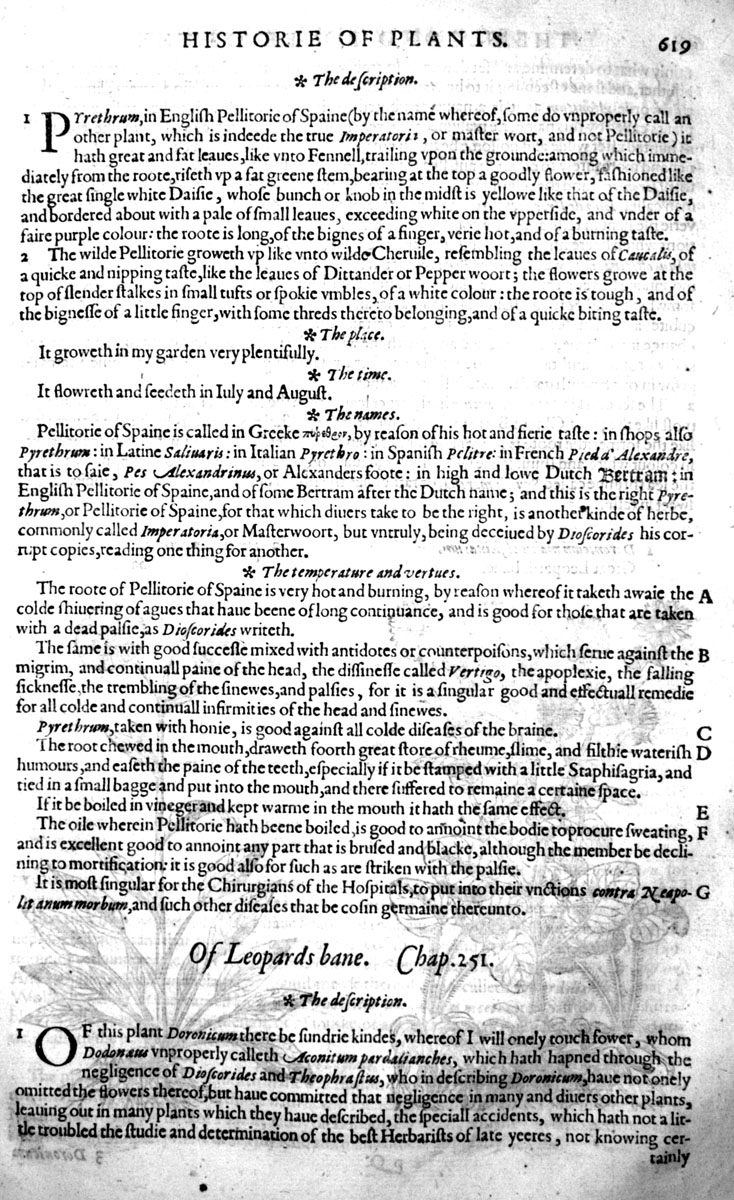 HISTORIE OF PLANTS. 619
* The deſcription.
1 PYrethrum, in Engliſh Pellitorie of Spaine (by the name whereof, ſome do vnproperly call an
other plant, which is indeede the true Imperatoria, or maſter wort, and not Pellitorie) it
hath great and fat leaues, like vnto Fennell, trailing vpon the grounde: among which imme-
diately from the roote, riſeth vp a fat greene ſtem, bearing at the top a goodly flower, faſhioned like
the great ſingle white Daiſie, whoſe bunch or knob in the midſt is yellowe like that of the Daiſie,
and bordered about with a pale of ſmall leaues, exceeding white on the vpperſide, and vnder of a
faire purple colour: the roote is long, of the bignes of a finger, verie hot, and of a burning taſte.
2 The wilde Pellitorie groweth vp like vnto wilde Cheruile, reſembling the leaues of Caucalis, of
a quicke and nipping taſte, like the leaues of Dittander or Pepper woort; the flowers growe at the
top of ſlender ſtalkes in ſmall tufts or ſpokie vmbles, of a white colour: the roote is tough, and of
the bigneſſe of a little finger, with ſome threds thereto belonging, and of a quicke biting taſte.
* The place.
It groweth in my garden very plentifully.
* The time.
It flowreth and ſeedeth in Iuly and Auguſt.
* The names.
Pellitorie of Spaine is called in Greeke πύρεθρον, by reaſon of his hot and fierie taſte: in ſhops alſo
Pyrethrum: in Latine Saliuaris: in Italian Pyrethro: in Spaniſh Pelitre: in French Pied d' Alexandre,
that is to ſaie, Pes Alexandrinus, or Alexanders foote: in high and lowe Dutch Bertram: in
Engliſh Pellitorie of Spaine, and of ſome Bertram after the Dutch name; and this is the right Pyre-
thrum, or Pellitorie of Spaine, for that which diuers take to be the right, is another kinde of herbe,
commonly called Imperatoria, or Maſterwoort, but vntruly, being deceiued by Dioſcorides his cor-
rupt copies, reading one thing for another.
* The temperature and vertues.
The roote of Pellitorie of Spaine is very hot and burning, by reaſon whereof it taketh awaie the A
colde ſhiuering of agues that haue beene of long continuance, and is good for thoſe that are taken
with a dead palſie, as Dioſcorides writeth.
The ſame is with good ſucceſſe mixed with antidotes or counterpoiſons, which ſerue againſt the B
migrim, and continuall paine of the head, the diſſineſſe called Vertigo, the apoplexie, the falling
ſickneſſe, the trembling of the ſinewes, and palſies, for it is a ſingular good and effectuall remedie
for all colde and continuall infirmities of the head and ſinewes.
Pyrethrum, taken with honie, is good againſt all colde diſeaſes of the braine. C
The root chewed in the mouth, draweth foorth great ſtore of rheume, ſlime, and filthie wateriſh D
humours, and eaſeth the paine of the teeth, eſpecially if it be ſtamped with a little Staphiſagria, and
tied in a ſmall bagge and put into the mouth, and there ſuffered to remaine a certaine ſpace.
If it be boiled in vineger and kept warme in the mouth it hath the ſame effect. E
The oile wherein Pellitorie hath beene boiled, is good to annoint the bodie to procure ſweating, F
and is excellent good to annoint any part that is bruſed and blacke, although the member be decli-
ning to mortification: it is good alſo for ſuch as are ſtriken with the palſie.
It is moſt ſingular for the Chirurgians of the Hoſpitals, to put into their vnctions contra Neapo- G
litanum morbum, and ſuch other diſeaſes that be coſin germaine thereunto.
Of Leopards bane. Chap. 251.
* The deſcription.
1 OF this plant Doronicum there be ſundrie kindes, whereof I will onely touch fower, whom
Dodonæus vnproperly calleth Aconitum pardalianches, which hath hapned through the
negligence of Dioſcorides and Theophraſtus, who in deſcribing Doronicum, haue not onely
omitted the flowers thereof, but haue committed that negligence in many and diuers other plants,
leauing out in many plants which they haue deſcribed, the ſpeciall accidents, which hath not a lit-
tle troubled the ſtudie and determination of the beſt Herbariſts of late yeeres, not knowing cer-
tainly